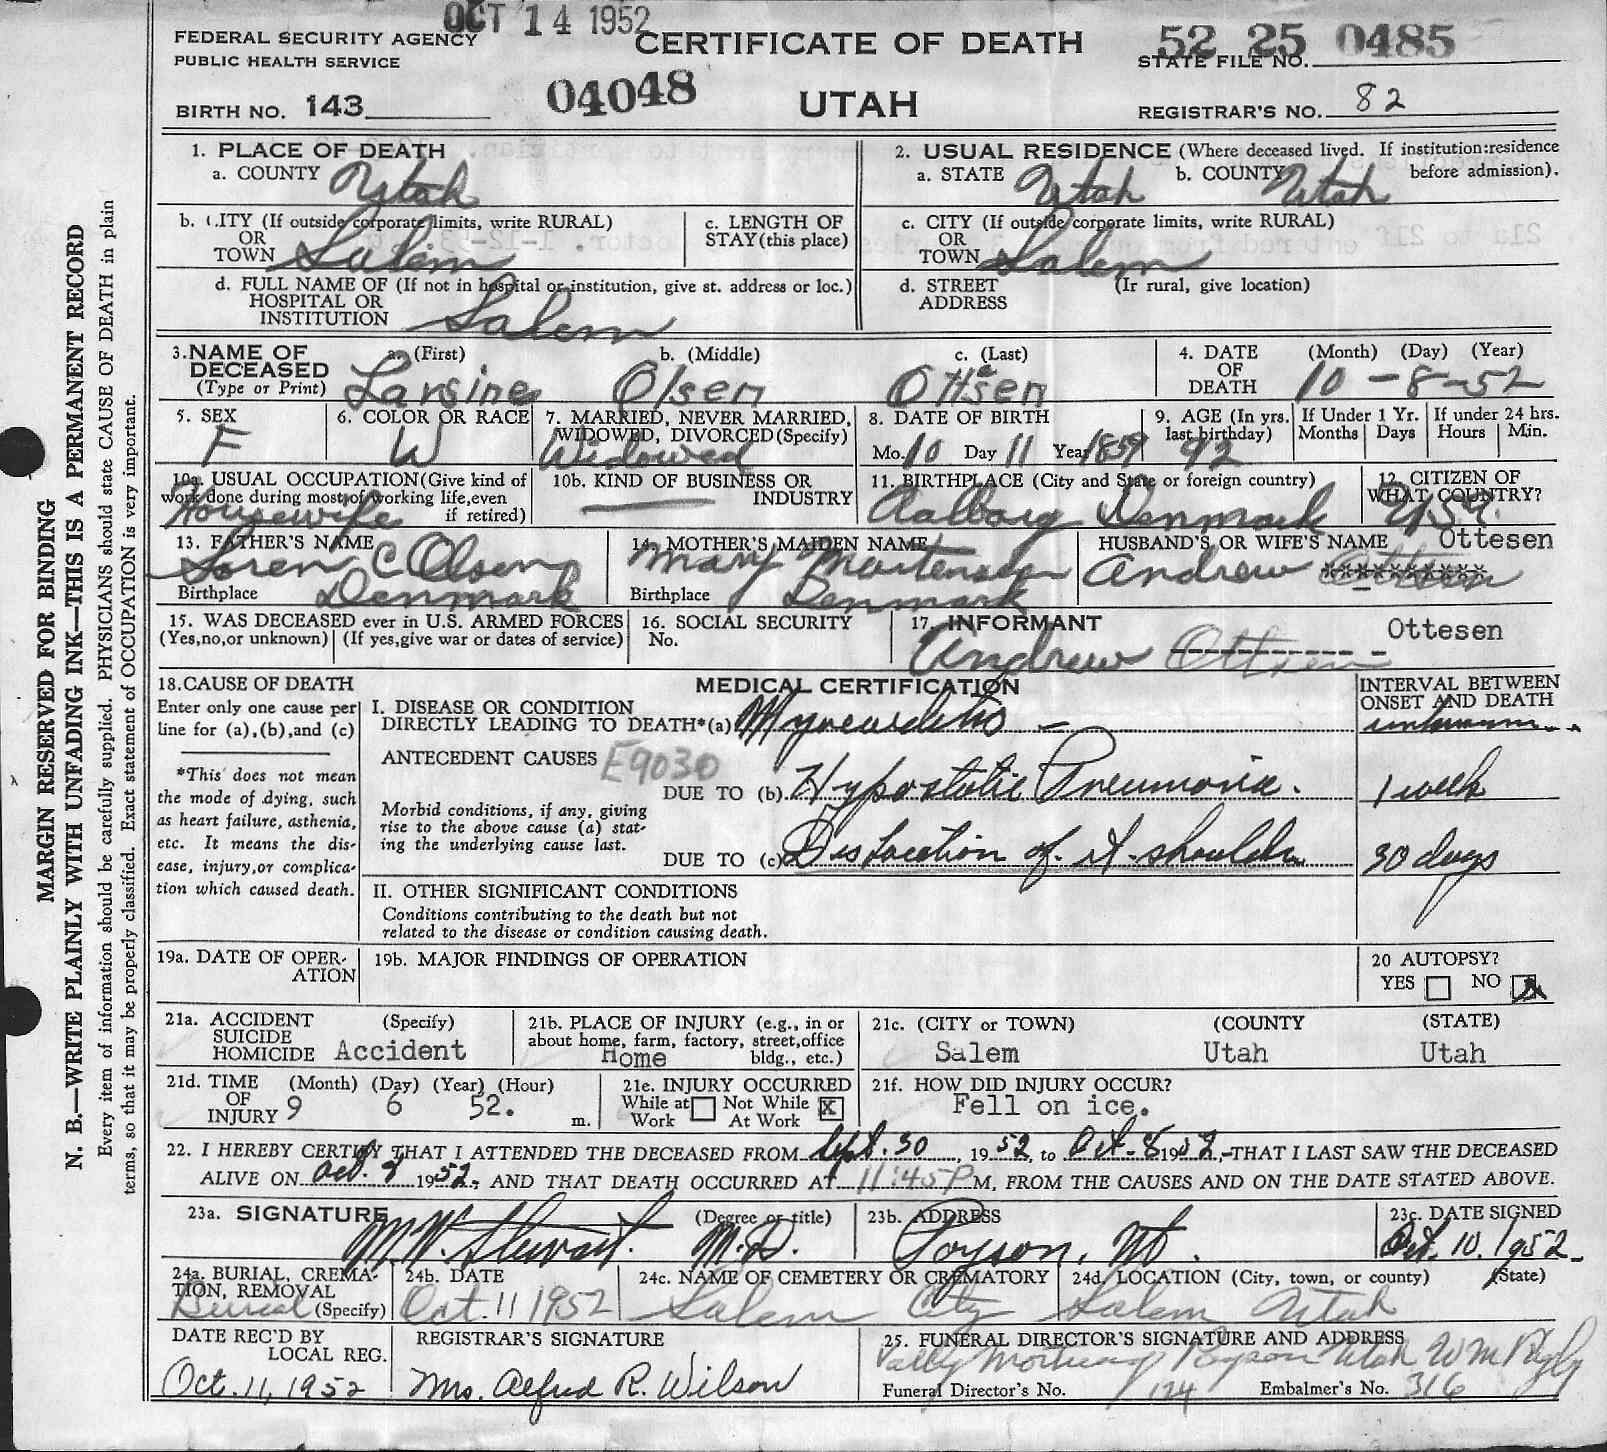 OCT 14 1952
FEDERAL SECURITY AGENCY
PUBLIC HEALTH SERVICE
CERTIFICATE OF DEATH
52 25 0485
STATE FILE NO.
BIRTH NO. 143
04048
UTAH
REGISTRAR'S NO. 82
MARGIN RESERVED FOR BINDING
N. B.—WRITE PLAINLY WITH UNFADING INK—THIS IS A PERMANENT RECORD
Every item of information should be carefully supplied. PHYSICIANS should state CAUSE OF DEATH in plain
terms, so that it may be properly classified. Exact statement of OCCUPATION is very important.
1. PLACE OF DEATH
a. COUNTY Utah
2. USUAL RESIDENCE (Where deceased lived. If institution:residence
before admission).
a. STATE Utah b. COUNTY Utah
b. CITY (If outside corporate limits, write RURAL)
OR
TOWN Salem
c. LENGTH OF
STAY (this place)
c. CITY (If outside corporate limits, write RURAL)
OR
TOWN Salem
d. FULL NAME OF (If not in hospital or institution, give st. address or loc.)
HOSPITAL OR
INSTITUTION Salem
d. STREET (If rural, give location)
ADDRESS
3. NAME OF DECEASED
(Type or Print)
a. (First) b. (Middle) c. (Last)
Larsine Olsen Ottsen
e
4. DATE OF DEATH (Month) (Day) (Year)
10-8-52
5. SEX
F
6. COLOR OR RACE
W
7. MARRIED, NEVER MARRIED,
WIDOWED, DIVORCED (Specify)
Widowed
8. DATE OF BIRTH
Mo. 10 Day 11 Year 1859
9. AGE (In yrs. last birthday)
92
If Under 1 Yr.
Months Days
If under 24 hrs.
Hours Min.
10a. USUAL OCCUPATION (Give kind of
work done during most of working life, even
if retired)
Housewife
10b. KIND OF BUSINESS OR
INDUSTRY
11. BIRTHPLACE (City and State or foreign country)
Aalborg Denmark
12. CITIZEN OF
WHAT COUNTRY?
USA.
13. FATHER'S NAME
Soren C Olsen
Birthplace Denmark
14. MOTHER'S MAIDEN NAME
Mary Mortensen
Birthplace Denmark
HUSBAND'S OR WIFE'S NAME Ottesen
Andrew
15. WAS DECEASED ever in U.S. ARMED FORCES
(Yes,no,or unknown) (If yes,give war or dates of service)
16. SOCIAL SECURITY
No.
17. INFORMANT Ottesen
Andrew Ottsen
18. CAUSE OF DEATH
Enter only one cause per
line for (a),(b),and (c)
*This does not mean
the mode of dying, such
as heart failure, asthenia,
etc. It means the dis-
ease, injury,or complica-
tion which caused death.
MEDICAL CERTIFICATION
INTERVAL BETWEEN
ONSET AND DEATH
I. DISEASE OR CONDITION
DIRECTLY LEADING TO DEATH*(a) Myocarditis – unknown
ANTECEDENT CAUSES E9030
DUE TO (b) Hypostatic Pneumonia. 1 week
Morbid conditions, if any, giving
rise to the above cause (a) stat-
ing the underlying cause last.
DUE TO (c) Dislocation of rt. shoulder 30 days
II. OTHER SIGNIFICANT CONDITIONS
Conditions contributing to the death but not
related to the disease or condition causing death.
19a. DATE OF OPER-
ATION
19b. MAJOR FINDINGS OF OPERATION
20 AUTOPSY?
YES NO X
21a. ACCIDENT (Specify)
SUICIDE
HOMICIDE Accident
21b. PLACE OF INJURY (e.g., in or
about home, farm, factory, street,office
bldg., etc.)
Home
21c. (CITY or TOWN) (COUNTY (STATE)
Salem Utah Utah
21d. TIME (Month) (Day) (Year) (Hour)
OF
INJURY 9 6 52. m.
21e. INJURY OCCURRED
While at Work Not While At Work X
21f. HOW DID INJURY OCCUR?
Fell on ice.
22. I HEREBY CERTIFY THAT I ATTENDED THE DECEASED FROM Sept. 30, 1952, to Oct. 8 1952, THAT I LAST SAW THE DECEASED
ALIVE ON Oct. 8 1952, AND THAT DEATH OCCURRED AT 11:45 P M, FROM THE CAUSES AND ON THE DATE STATED ABOVE.
23a. SIGNATURE (Degree or title)
M.W. Stewart. M.D.
23b. ADDRESS
Payson, Ut.
23c. DATE SIGNED
Oct. 10. 1952.
24a. BURIAL, CREMA-
TION, REMOVAL
Burial (Specify)
24b. DATE
Oct. 11 1952
24c. NAME OF CEMETERY OR CREMATORY
Salem City
24d. LOCATION (City, town, or county) (State)
Salem Utah
DATE REC'D BY
LOCAL REG.
Oct. 11, 1952
REGISTRAR'S SIGNATURE
Mrs. Alfred R. Wilson
25. FUNERAL DIRECTOR'S SIGNATURE AND ADDRESS
Valley Mortuary Payson Utah
Funeral Director's No. 124 Embalmer's No. 316